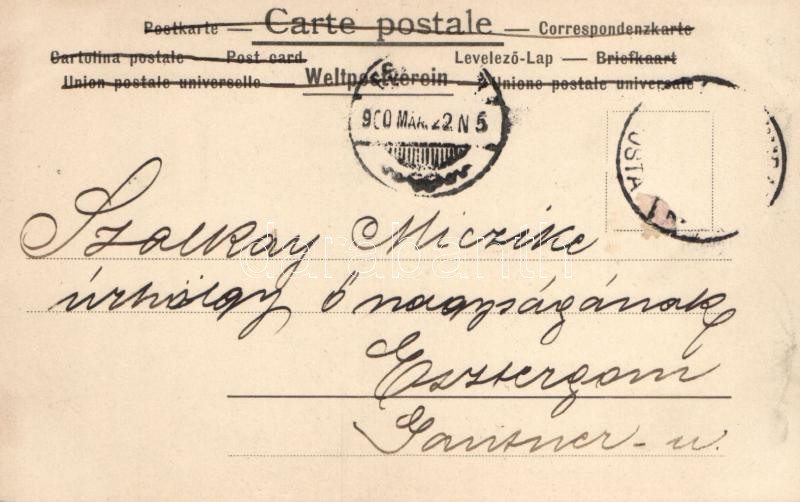 Postkarte — Carte postale — Correspondenzkarte
Cartolina postale — Post card Levelező-Lap — Briefkaart
Union postale universelle Weltpostverein Unione postale universale
900 MÁR. 22. N 5
POSTA
Szalkay Miczike
darabanth
úrhölgy ő nagyságának
Esztergom
Gantner-u.